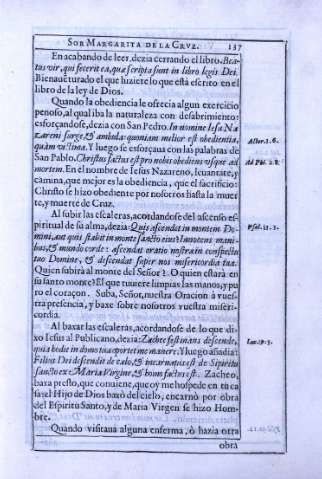 SOR MARGARITA DE LA CRVZ. 137
En acabando de leer, dezia cerrando el libro. Bea-
tus vir, qui fecerit ea, quæ scripta sunt in libro legis Dei.
Bienauēturado el que hiziere lo que está escrito en el
libro de la ley de Dios.
Quando la obediencia le ofrecia algun exercicio
penoso, al qual iba la naturaleza con desabrimiento:
esforçandose, dezia con San Pedro. In nomine Iesu Na-
zareni surge, & ambula: quoniam melior est obedientia,
quàm victima. Y luego se esforçaua con las palabras de
San Pablo. Christus factus est pro nobis obediens vsque ad
mortem. En el nombre de Iesus Nazareno, leuantate, y
camina, que mejor es la obediencia, que el sacrificio:
Christo se hizo obediente por nosotros hasta la muer
te, y muerte de Cruz.
Actor. 3. 6.
Ad Phi. 2. 8.
Al subir las escaleras, acordandose del ascenso es-
piritual de su alma, dezia: Quis ascendet in montem Do-
mini, aut quis stabit in monte sancto eius? Innocens mani-
bus, & mundo corde: ascendat oratio nostra in conspectu
tuo Domine, & descendat super nos misericordia tua.
Quien subirà al monte del Señor? O quien estarà en
su santo monte? El que tuuiere limpias las manos, y pu
ro el coraçon. Suba, Señor, nuestra Oracion à vues-
tra presencia, y baxe sobre nosotros vuestra miseri-
cordia.
Psal. 23. 3.
Al baxar las escaleras, acordandose de lo que di-
xo Iesus al Publicano, dezia: Zachæe festinans descende,
quia hodie in domo tua oportet me manere. Y luego añadia:
Filius Dei descendit de cælo, & incarnatus est de Spiritu
sancto ex Maria Virgine, & homo factus est. Zacheo,
baxa presto, que conuiene, que oy me hospede en tu ca
sa: el Hijo de Dios baxò del cielo, encarnò por obra
del Espiritu Santo, y de Maria Virgen se hizo Hom-
bre.
Luc. 19. 5.
Quando visitaua alguna enferma, ò hazia otra
obra